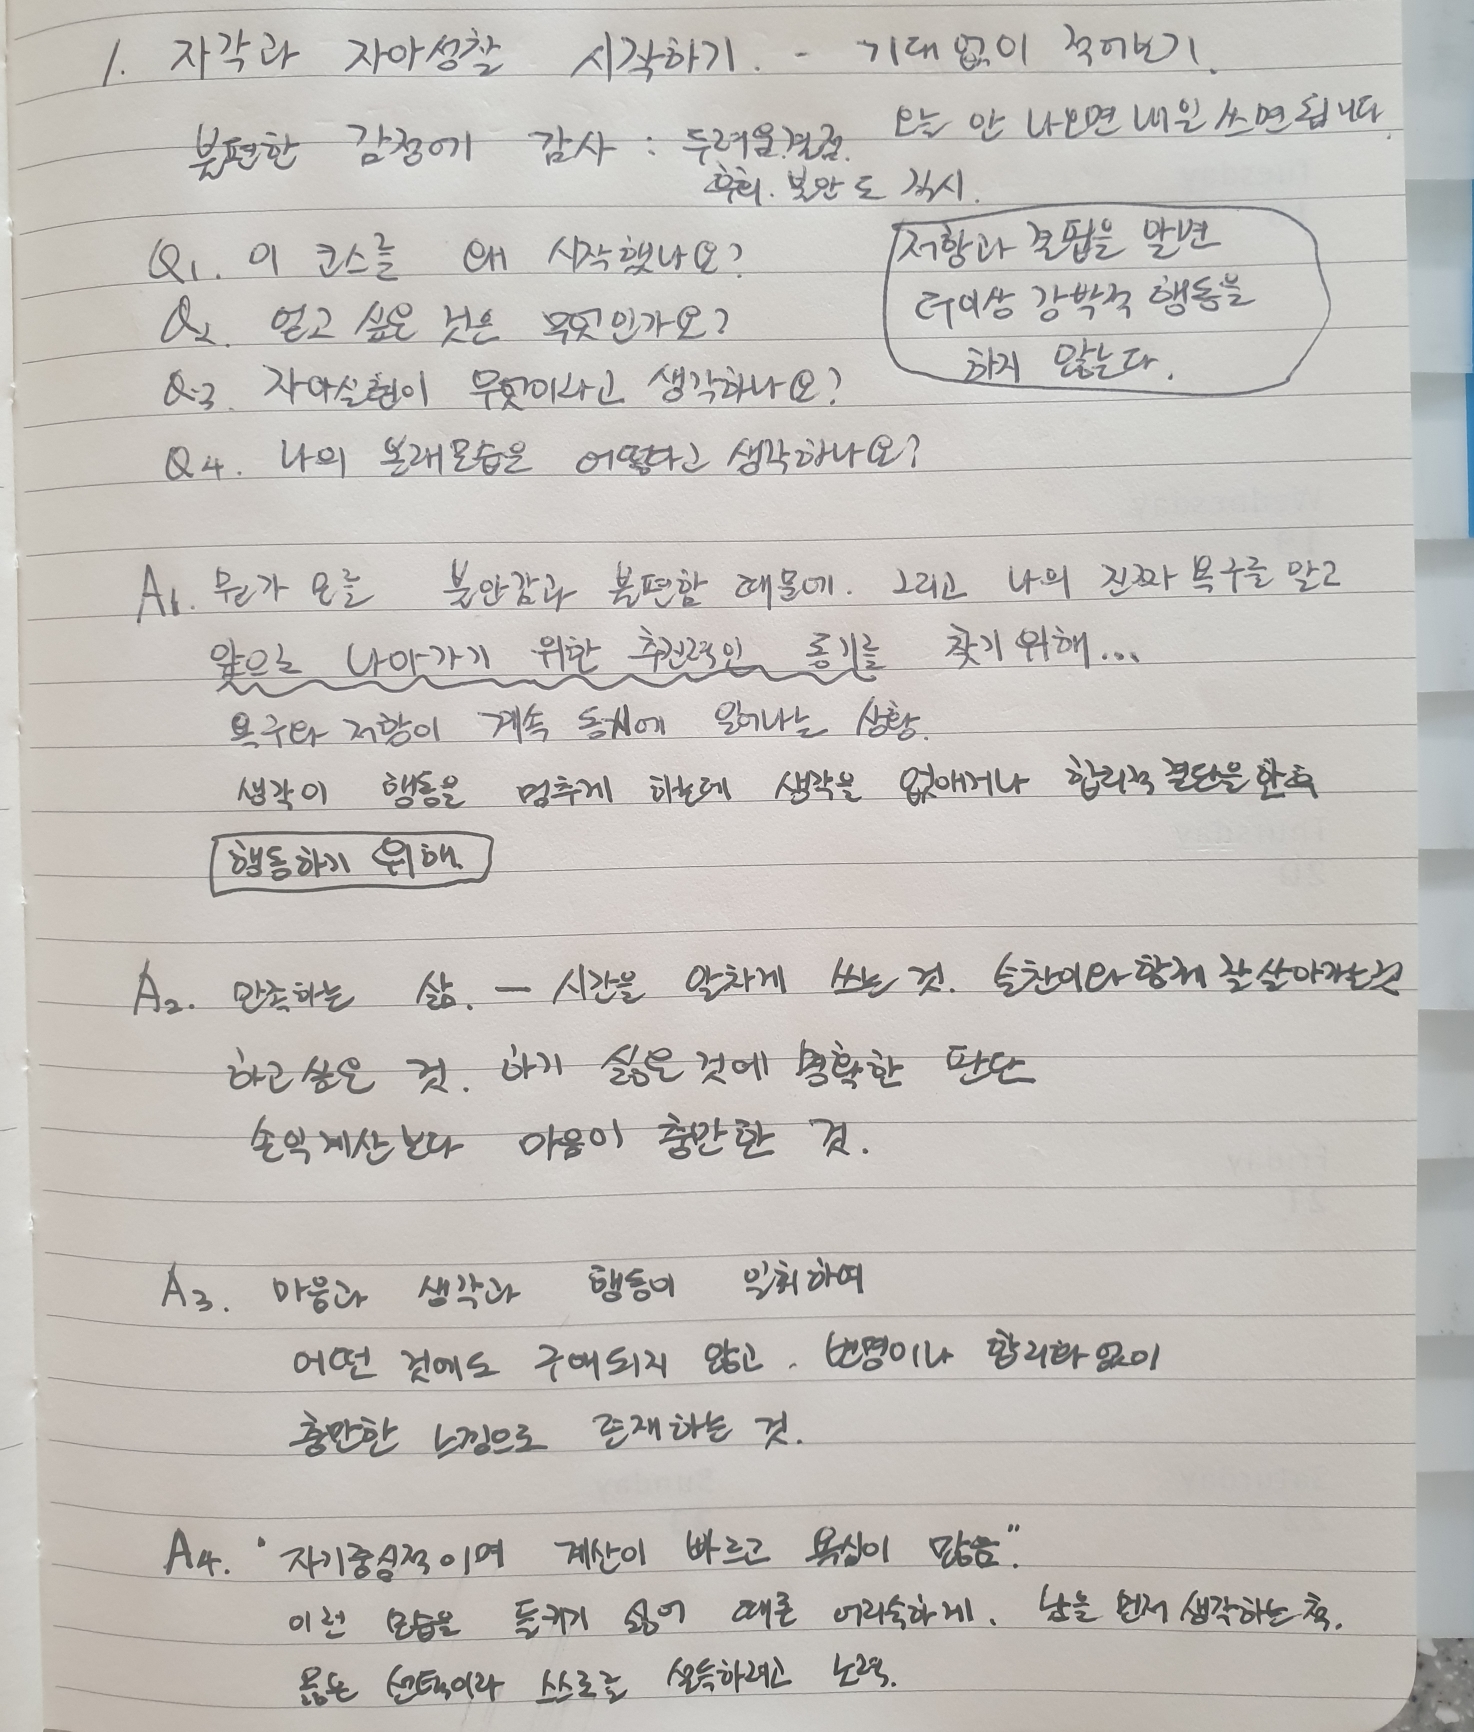 1. 자각과 자아성찰 시작하기. - 기대 없이 적어보기.
오늘 안 나오면 내일 쓰면 됩니다.
불편한 감정에 감사 : 두려움.결점.
후회. 불안도 직시.
Q1. 이 코스를 왜 시작했나요?
Q2. 얻고 싶은 것은 무엇인가요?
Q3. 자아실현이 무엇이라고 생각하나요?
Q4. 나의 본래모습은 어떻다고 생각하나요?
저항과 결핍을 알면
더이상 강박적 행동을
하지 않는다.
A1. 뭔가 모를 불안감과 불편함 때문에. 그리고 나의 진짜 욕구를 알고
앞으로 나아가기 위한 추진력인 동기를 찾기 위해...
욕구와 저항이 계속 동시에 일어나는 상황.
생각이 행동을 멈추게 하는데 생각을 없애거나 합리적 결단을 한 후
행동하기 위해.
A2. 만족하는 삶. - 시간을 알차게 쓰는 것. 함께 잘 살아가는 것
하고 싶은 것. 하기 싫은 것에 명확한 판단
손익계산보다 마음이 충만한 것.
A3. 마음과 생각과 행동이 일치하여
어떤 것에도 구애되지 않고. 변명이나 합리화 없이
충만한 느낌으로 존재하는 것.
A4. "자기중심적이며 계산이 빠르고 욕심이 많음".
이런 모습을 들키기 싫어 때론 어리숙하게. 남을 먼저 생각하는 척.
옳은 선택이라 스스로를 설득하려고 노력.